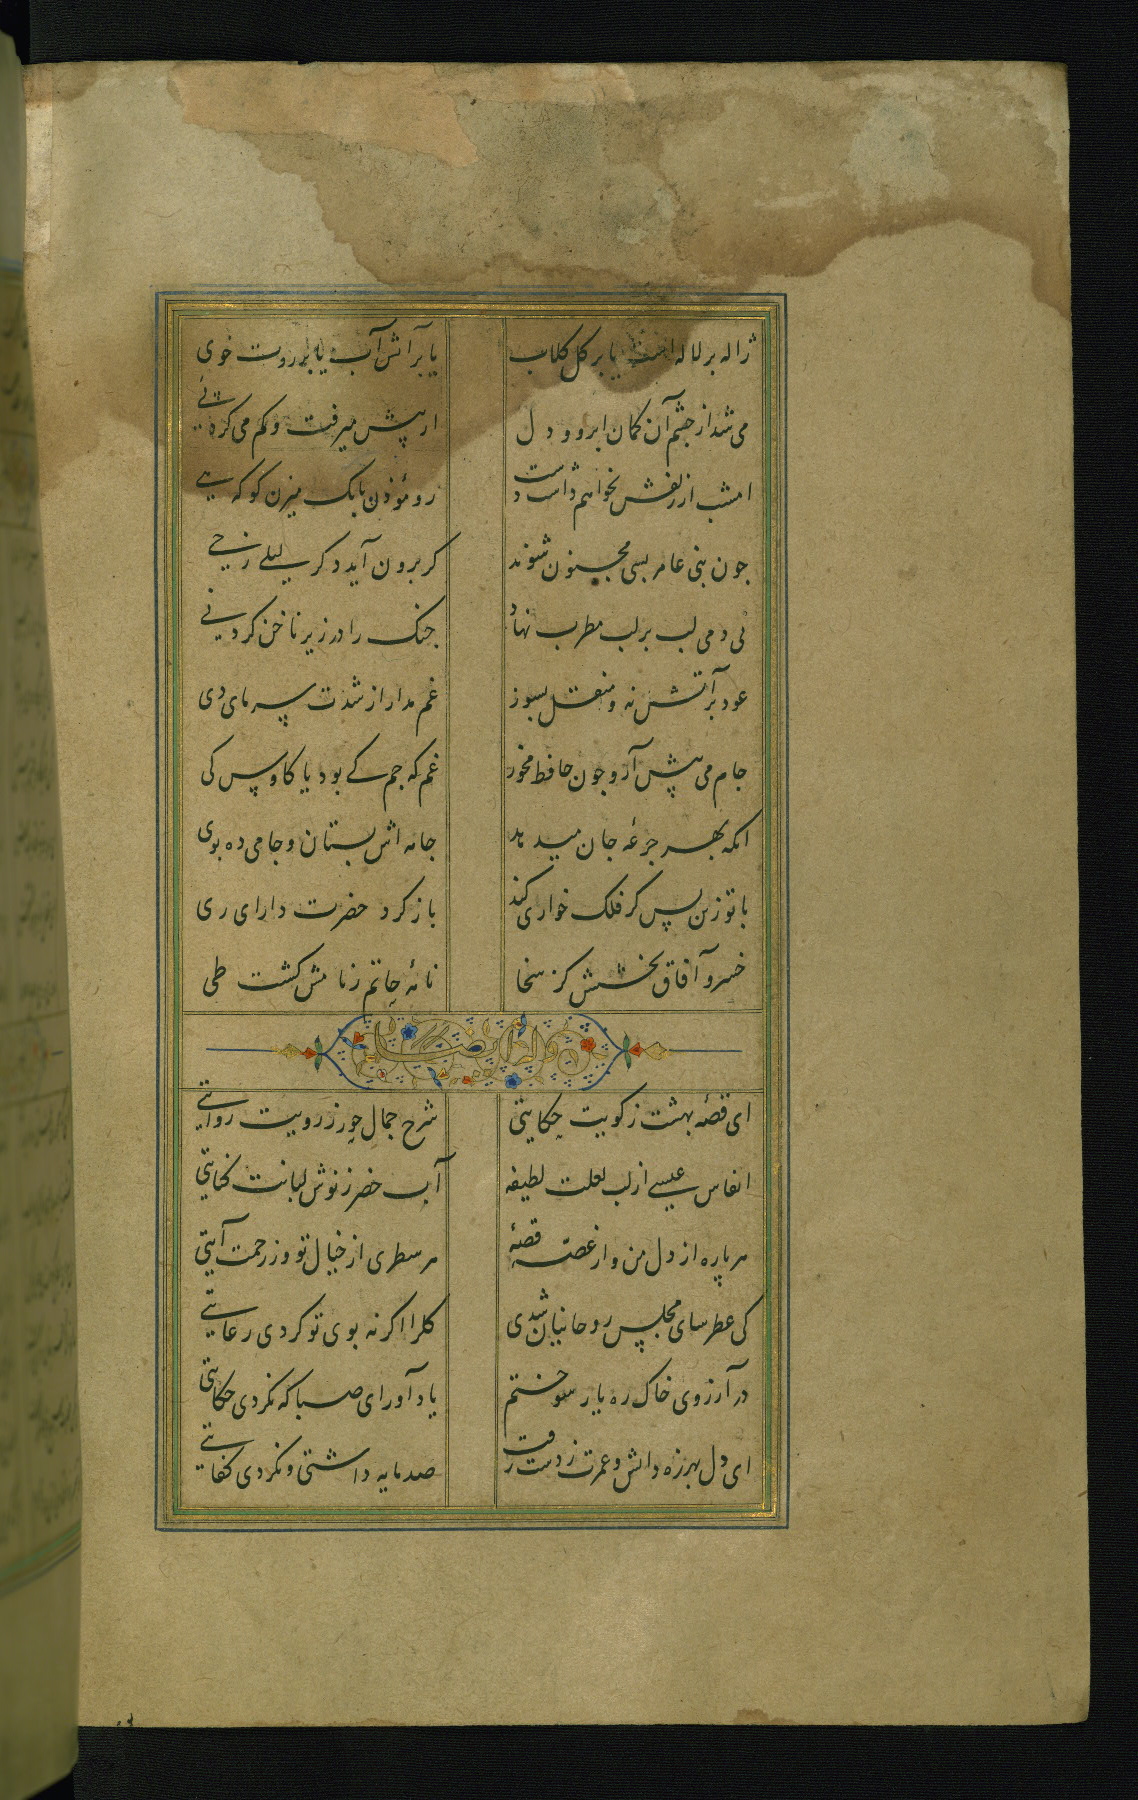 ژاله بر لاله است یا بر گل گلاب یا بر آتش آب یا بر روت خوی
می شد از چشم آن کمان ابرو و دل از پیش میرفت و کم می کرد پی
امشب از زلفش نخواهم داشت دست رو مؤذن بانک میزن کو که حی
چون بنی عامر بسی مجنون شوند کر برون آید دکر لیلی ز حی
نی دمی لب بر لب مطرب نهاد چنک را در زیر ناخن کرد نی
عود بر آتش نه و منقل بسوز غم مدار از شدت سرمای دی
جام می پیش آر و چون حافظ مخور غم که جم کی بود یا کاوس کی
انکه بهر جرعه جان میدهد جانه اش بستان و جامی ده بوی
با تو زین پس کر فلک خواری کند باز کرد حضرت دارای ری
خسرو آفاق بخشش کز سخا نامهٔ حاتم ز نامش کشت طی
وله ایضا
ای قصهٔ بهشت ز کویت حکایتی شرح جمال حور ز رویت روایتی
انفاس عیسی از لب لعلت لطیفه آب خضر ز نوش لبانت کنایتی
هر پاره از دل من و از غصه قصهٔ هر سطری از خیال تو وز رحمت آیتی
کی عطرسای مجلس روحانیان شدی کل را اکر نه بوی تو کردی رعایتی
در آرزوی خاک ره یار سوختیم یاد آور ای صبا که نکردی حکایتی
ای دل بهرزه دانش و عمرت ز دست رفت صد مایه داشتی و نکردی کفایتی